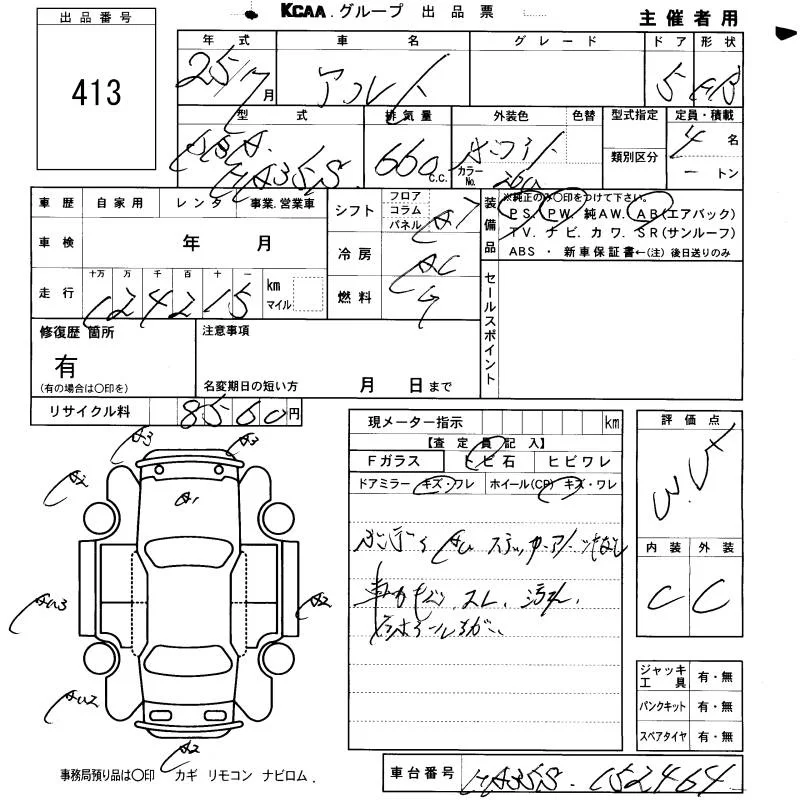 KCAA.グループ 出品票
主催者用
出品番号
413
年式 車名 グレード ドア 形状
25/7月 アルト 5 HB
型式 排気量 外装色 色替 型式指定 定員・積載
DBA HA35S 660 c.c. カラーNo. 類別区分 4名
ートン
車歴 自家用 レンタ 事業.営業車
シフト フロア コラム パネル AT
装備品
※純正のみ○印をつけて下さい。
PS. PW. 純AW. AB(エアバック)
TV. ナビ. カワ. SR(サンルーフ)
ABS ・ 新車保証書←(注) 後日送りのみ
車検 年 月
冷房 AC
走行 十万 万 千 百 十 一
124215 km マイル
燃料 ガ
セールスポイント
修復歴 箇所
有
(有の場合は○印を)
注意事項
名変期日の短い方 月 日まで
リサイクル料 8560円
現メーター指示 km
【査定員記入】
Fガラス トビ石 ヒビワレ
ドアミラー キズ・ワレ ホイール(CP) キズ・ワレ
評価点
内装 外装
C C
A3 A3
A2
A1
AU3 A2
AU2
A2
車内 スレ、汚れ、
ジャッキ工具 有・無
パンクキット 有・無
スペアタイヤ 有・無
事務局預り品は○印 カギ リモコン ナビロム.
車台番号 HA35S-152464